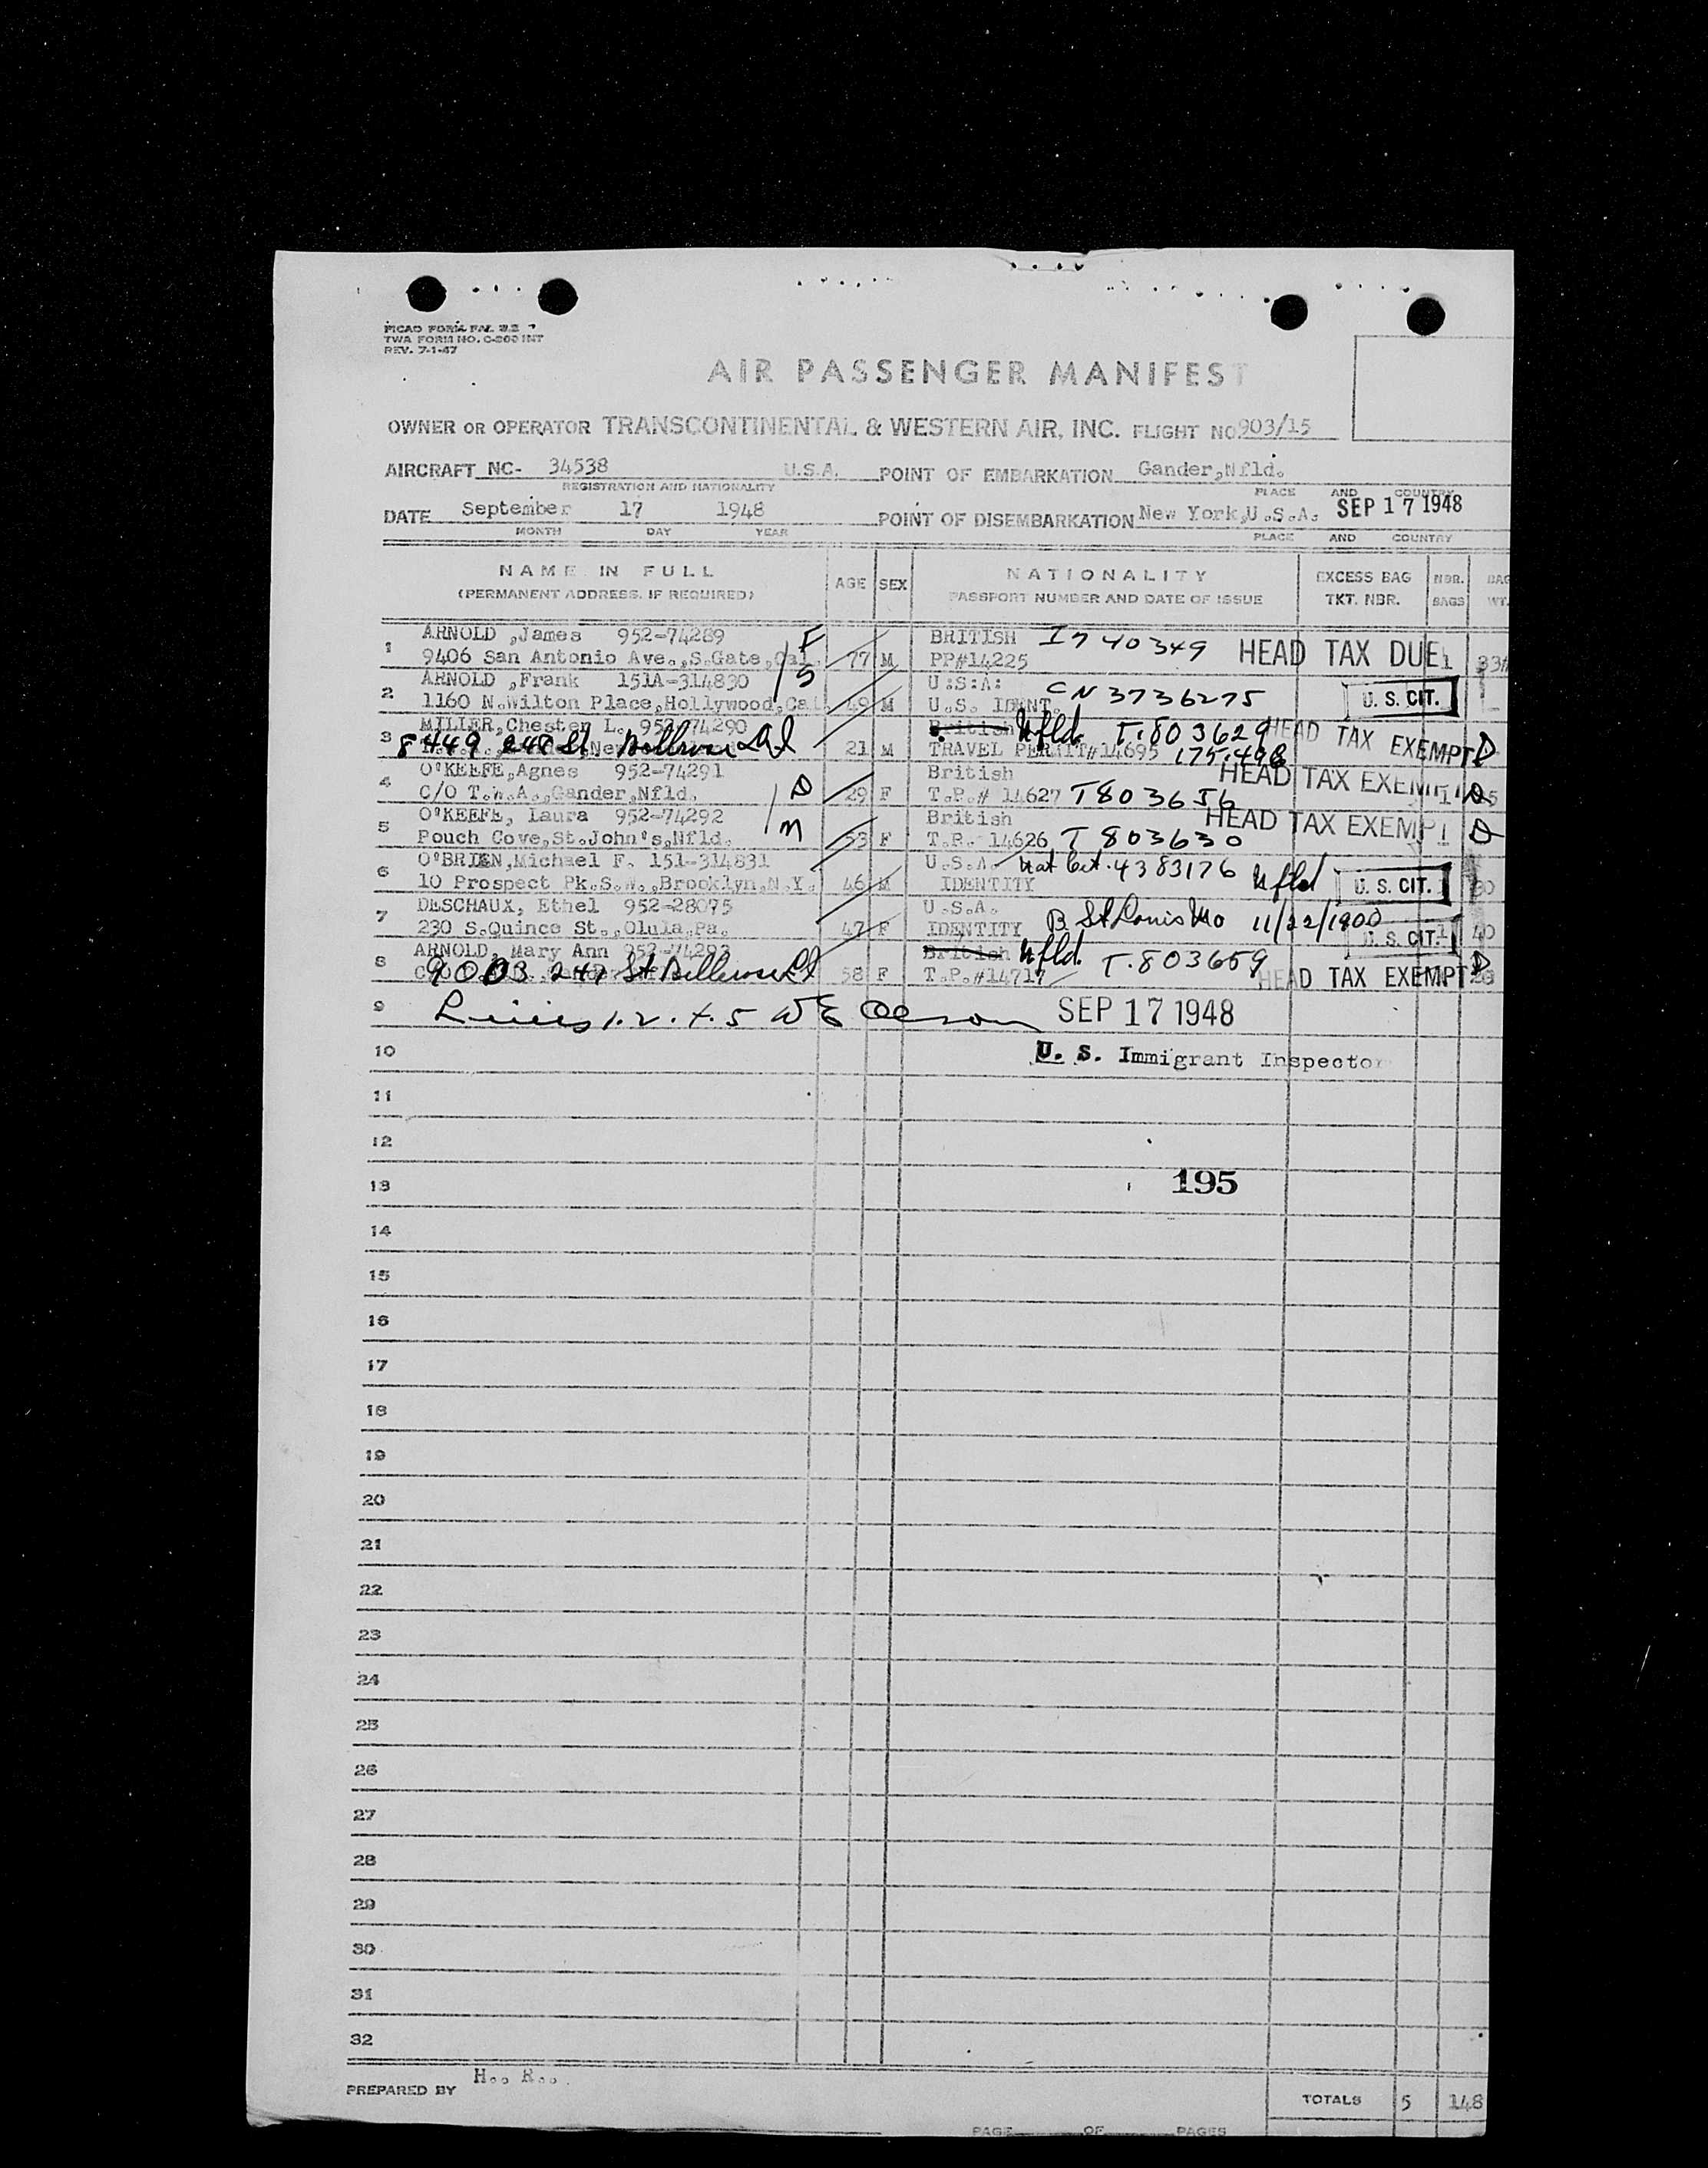 PICAO FORM FAL 2.2
TWA FORM NO. C-200 INT
REV. 7-1-47
AIR PASSENGER MANIFEST
OWNER OR OPERATOR TRANSCONTINENTAL & WESTERN AIR, INC. FLIGHT NO 903/15
AIRCRAFT NC- 34538 U.S.A. POINT OF EMBARKATION Gander,Nfld.
REGISTRATION AND NATIONALITY PLACE AND COUNTRY
DATE September 17 1948 POINT OF DISEMBARKATION New York,U.S.A. SEP 17 1948
MONTH DAY YEAR PLACE AND COUNTRY
NAME IN FULL AGE SEX NATIONALITY EXCESS BAG NBR. BAG
(PERMANENT ADDRESS, IF REQUIRED) PASSPORT NUMBER AND DATE OF ISSUE TKT. NBR. BAGS WT.
1 ARNOLD ,James 952-74289 F BRITISH I740349 HEAD TAX DUE 1 33#
9406 San Antonio Ave.,S.Gate,Cal. 77 M PP#14225
2 ARNOLD ,Frank 151A-314830 S U:S:A: CN 3736275 U. S. CIT.
1160 N.Wilton Place,Hollywood,Cal 49 M U.S. IDENT.
3 MILLER,Chester L. 952-74290 British Nfld. T.803629 HEAD TAX EXEMPT D
8449 248 St 21 M TRAVEL PERMIT#14695 175.498
4 O'KEEFE,Agnes 952-74291 British HEAD TAX EXEMPT
C/O T.W.A.,Gander,Nfld. D 29 F T.P.# 14627 T803656 1 D
5 O'KEEFE, Laura 952-74292 British HEAD TAX EXEMPT 1 D
Pouch Cove,St.John's,Nfld. M 53 F T.P. 14626 T 803630
6 O'BRIEN,Michael F. 151-314831 U.S.A. Nat Cert. 4383176 Nfld U. S. CIT. 30
10 Prospect Pk.S.W.,Brooklyn,N.Y. 46 M IDENTITY
7 DESCHAUX, Ethel 952-28075 U.S.A.
230 S.Quince St.,Olula,Pa. 47 F IDENTITY B St Louis Mo 11/22/1900 U. S. CIT. 1 40
8 ARNOLD, Mary Ann 952-74293 British Nfld. T.803659
9003 247 St 58 F T.P.#14717 HEAD TAX EXEMPT D
9 Lines 1.2.4.5 W E Olerson SEP 17 1948
10 U. S. Immigrant Inspector
11
12
13 195
14
15
16
17
18
19
20
21
22
23
24
25
26
27
28
29
30
31
32
PREPARED BY H.. R... TOTALS 5 148
PAGE OF PAGES